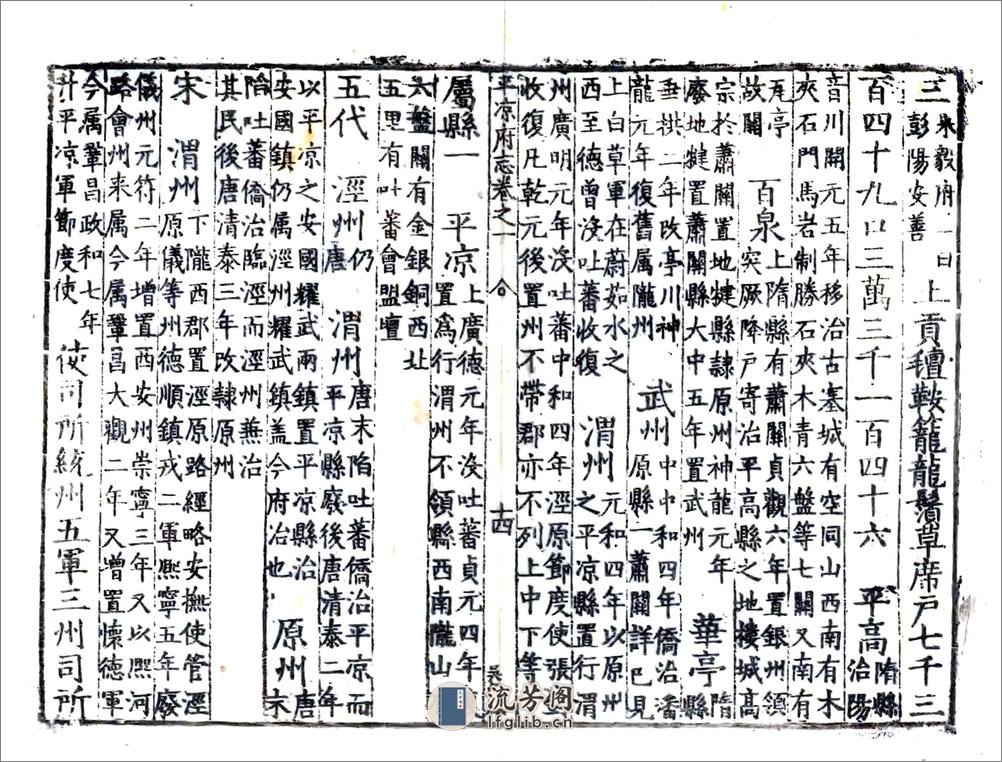 三 朱毅府一曰 彭陽安善 上貢氊鞍籠龍鬚草席戸七千三
百四十九口三萬三千一百四十六 平高 隋縣 治陽
音川開元五年移治古塞城有空同山西南有木
夾石門馬岩制勝石夾木青六盤等七關又南有
瓦亭故關 百泉 上隋縣有蕭關貞觀六年置銀州領突厥降戸寄治平高縣之地樓城高
宗於蕭關置地犍縣隸原州神龍元年廢地犍置蕭關縣大中五年置武州 華亭 隋
垂拱二年改亭川神龍元年復舊属隴州 武州 中中和四年僑治潘原縣一蕭關詳已見
上白草軍在蔚茹水之西至德曾沒吐蕃收復 渭州 元和四年以原州之平凉縣置行渭
州廣明元年沒吐蕃中和四年涇原節度使張
收復凡乾元後置州不帶郡亦不列上中下等
平凉府志卷之一 十四
屬縣一 平凉 上廣德元年沒吐蕃貞元四年置為行渭州不領縣西南隴山
六盤關有金銀銅西北五里有吐蕃會盟壇
五代 涇州 仍唐 渭州 唐末陷吐蕃僑治平凉而平凉縣廢後唐清泰二年
以平凉之安國耀武兩鎮置平凉縣治安國鎮仍属涇州耀武鎮盖今府治也 原州 唐末
陷吐蕃僑治臨涇而涇州兼治其民後唐清泰三年改隸原州
宋 渭州 下隴西郡置涇原路經略安撫使管涇原儀等州德順鎮戎二軍熙寧五年廢
儀州元符二年增置西安州崇寧三年又以熙河路會州来属今属鞏昌大觀二年又增置懷德軍
今属鞏昌政和七年升平凉軍節度使 使司所統州五軍三州司所
流芳阁
lfglib.cn